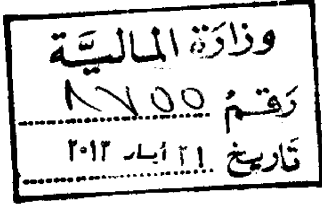 وزارة المالية
رقم ٨٧٥٥
تاريخ ٢١ أيار ٢٠١٣